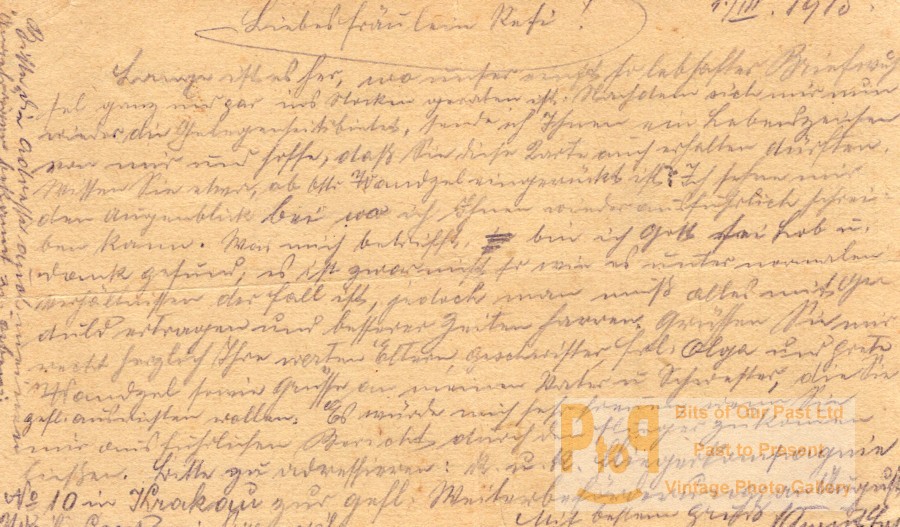 1915.
Liebes Fräulein Resi!
Lange ist es her, wo unser einst so lebhafter Briefwech
sel ganz und gar ins Stocken geraten ist. Nachdem sich mir nun
wieder die Gelegenheit bietet, sende ich Ihnen ein Lebenszeichen
von mir und hoffe, daß Sie diese Karte auch erhalten dürften.
Wissen Sie etwa, ob Otto Wandzel eingerückt ist? Ich sehne mir
den Augenblick bei wo ich Ihnen wieder ausführlich schrei-
ben kann. Was mich betrifft, bin ich Gott sei Lob u.
dank gesund, es ist zwar nicht so wie es unter normalen
Verhältnissen der Fall ist, jedoch man muß alles mit Ge-
duld ertragen und besserer Zeiten harren. Grüssen Sie mir
recht herzlich Ihre werten Eltern, Geschwister, Frl. Olga und Grete
Wandzel sowie Grüsse an meinen Vater u Schwester, die Sie
gefl. ausrichten wollen. Es würde mich sehr wenn Sie
mir ausführlichen Bericht durch zukommen
ließen. Bitte zu adressieren: K. u. K.
No 10 in Krakau zur gefl.
Mit bestem Gruß
Bitte, die Adresse
PtoP
Bits of Our Past Ltd
Past to Present
Vintage Photo Gallery